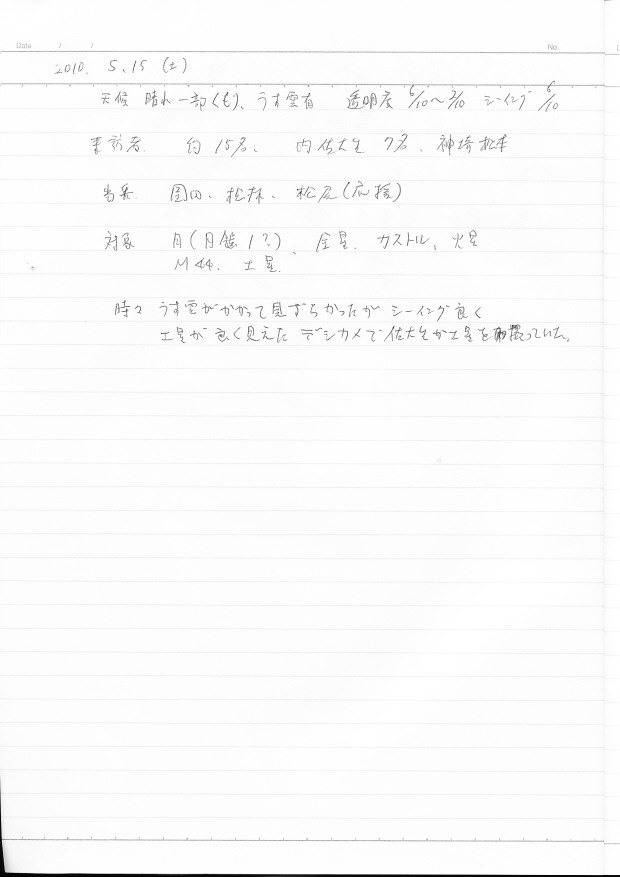 Date / /
No.
2010. 5.15 (土)
天候 晴れ一部くもり、うす雲有 透明度 6/10〜7/10 シーイング 6/10
来訪者. 約15名、 内佐大生 7名、神埼松本
当番. 園田、松林、松尾(応援)
対象 月(月齢1?)、金星、カストル、火星
M44、土星.
時々 うす雲がかかって見づらかったが シーイング良く
土星が良く見えた デジカメで佐大生が土星を撮っていた。